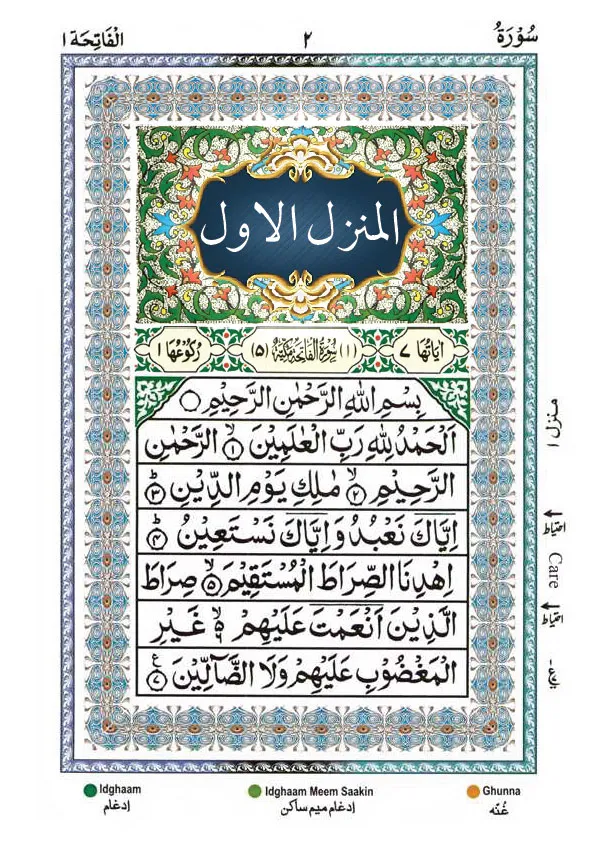 سُوْرَةُ ٢ الْفَاتِحَة ١
المنزل الاول
اٰيَاتُهَا ٧ (١) سُوْرَةُ الْفَاتِحَةِ مَكِّيَّةٌ (٥) رُكُوْعُهَا ١
بِسْمِ اللّٰهِ الرَّحْمٰنِ الرَّحِيْمِ
اَلْحَمْدُ لِلّٰهِ رَبِّ الْعٰلَمِيْنَ ۙ﴿١﴾ الرَّحْمٰنِ
الرَّحِيْمِ ۙ﴿٢﴾ مٰلِكِ يَوْمِ الدِّيْنِ ؕ﴿٣﴾
اِيَّاكَ نَعْبُدُ وَ اِيَّاكَ نَسْتَعِيْنُ ؕ﴿٤﴾
اِهْدِنَا الصِّرَاطَ الْمُسْتَقِيْمَ ۙ﴿٥﴾ صِرَاطَ
الَّذِيْنَ اَنْعَمْتَ عَلَيْهِمْ ۙ۬﴿٦﴾ غَيْرِ
الْمَغْضُوْبِ عَلَيْهِمْ وَلَا الضَّآلِّيْنَ ﴿٧﴾ ع
منزل ١
احتیاط
Care
احتیاط
Idghaam
إدغام
Idghaam Meem Saakin
إدغام میم ساکن
Ghunna
غُنّه